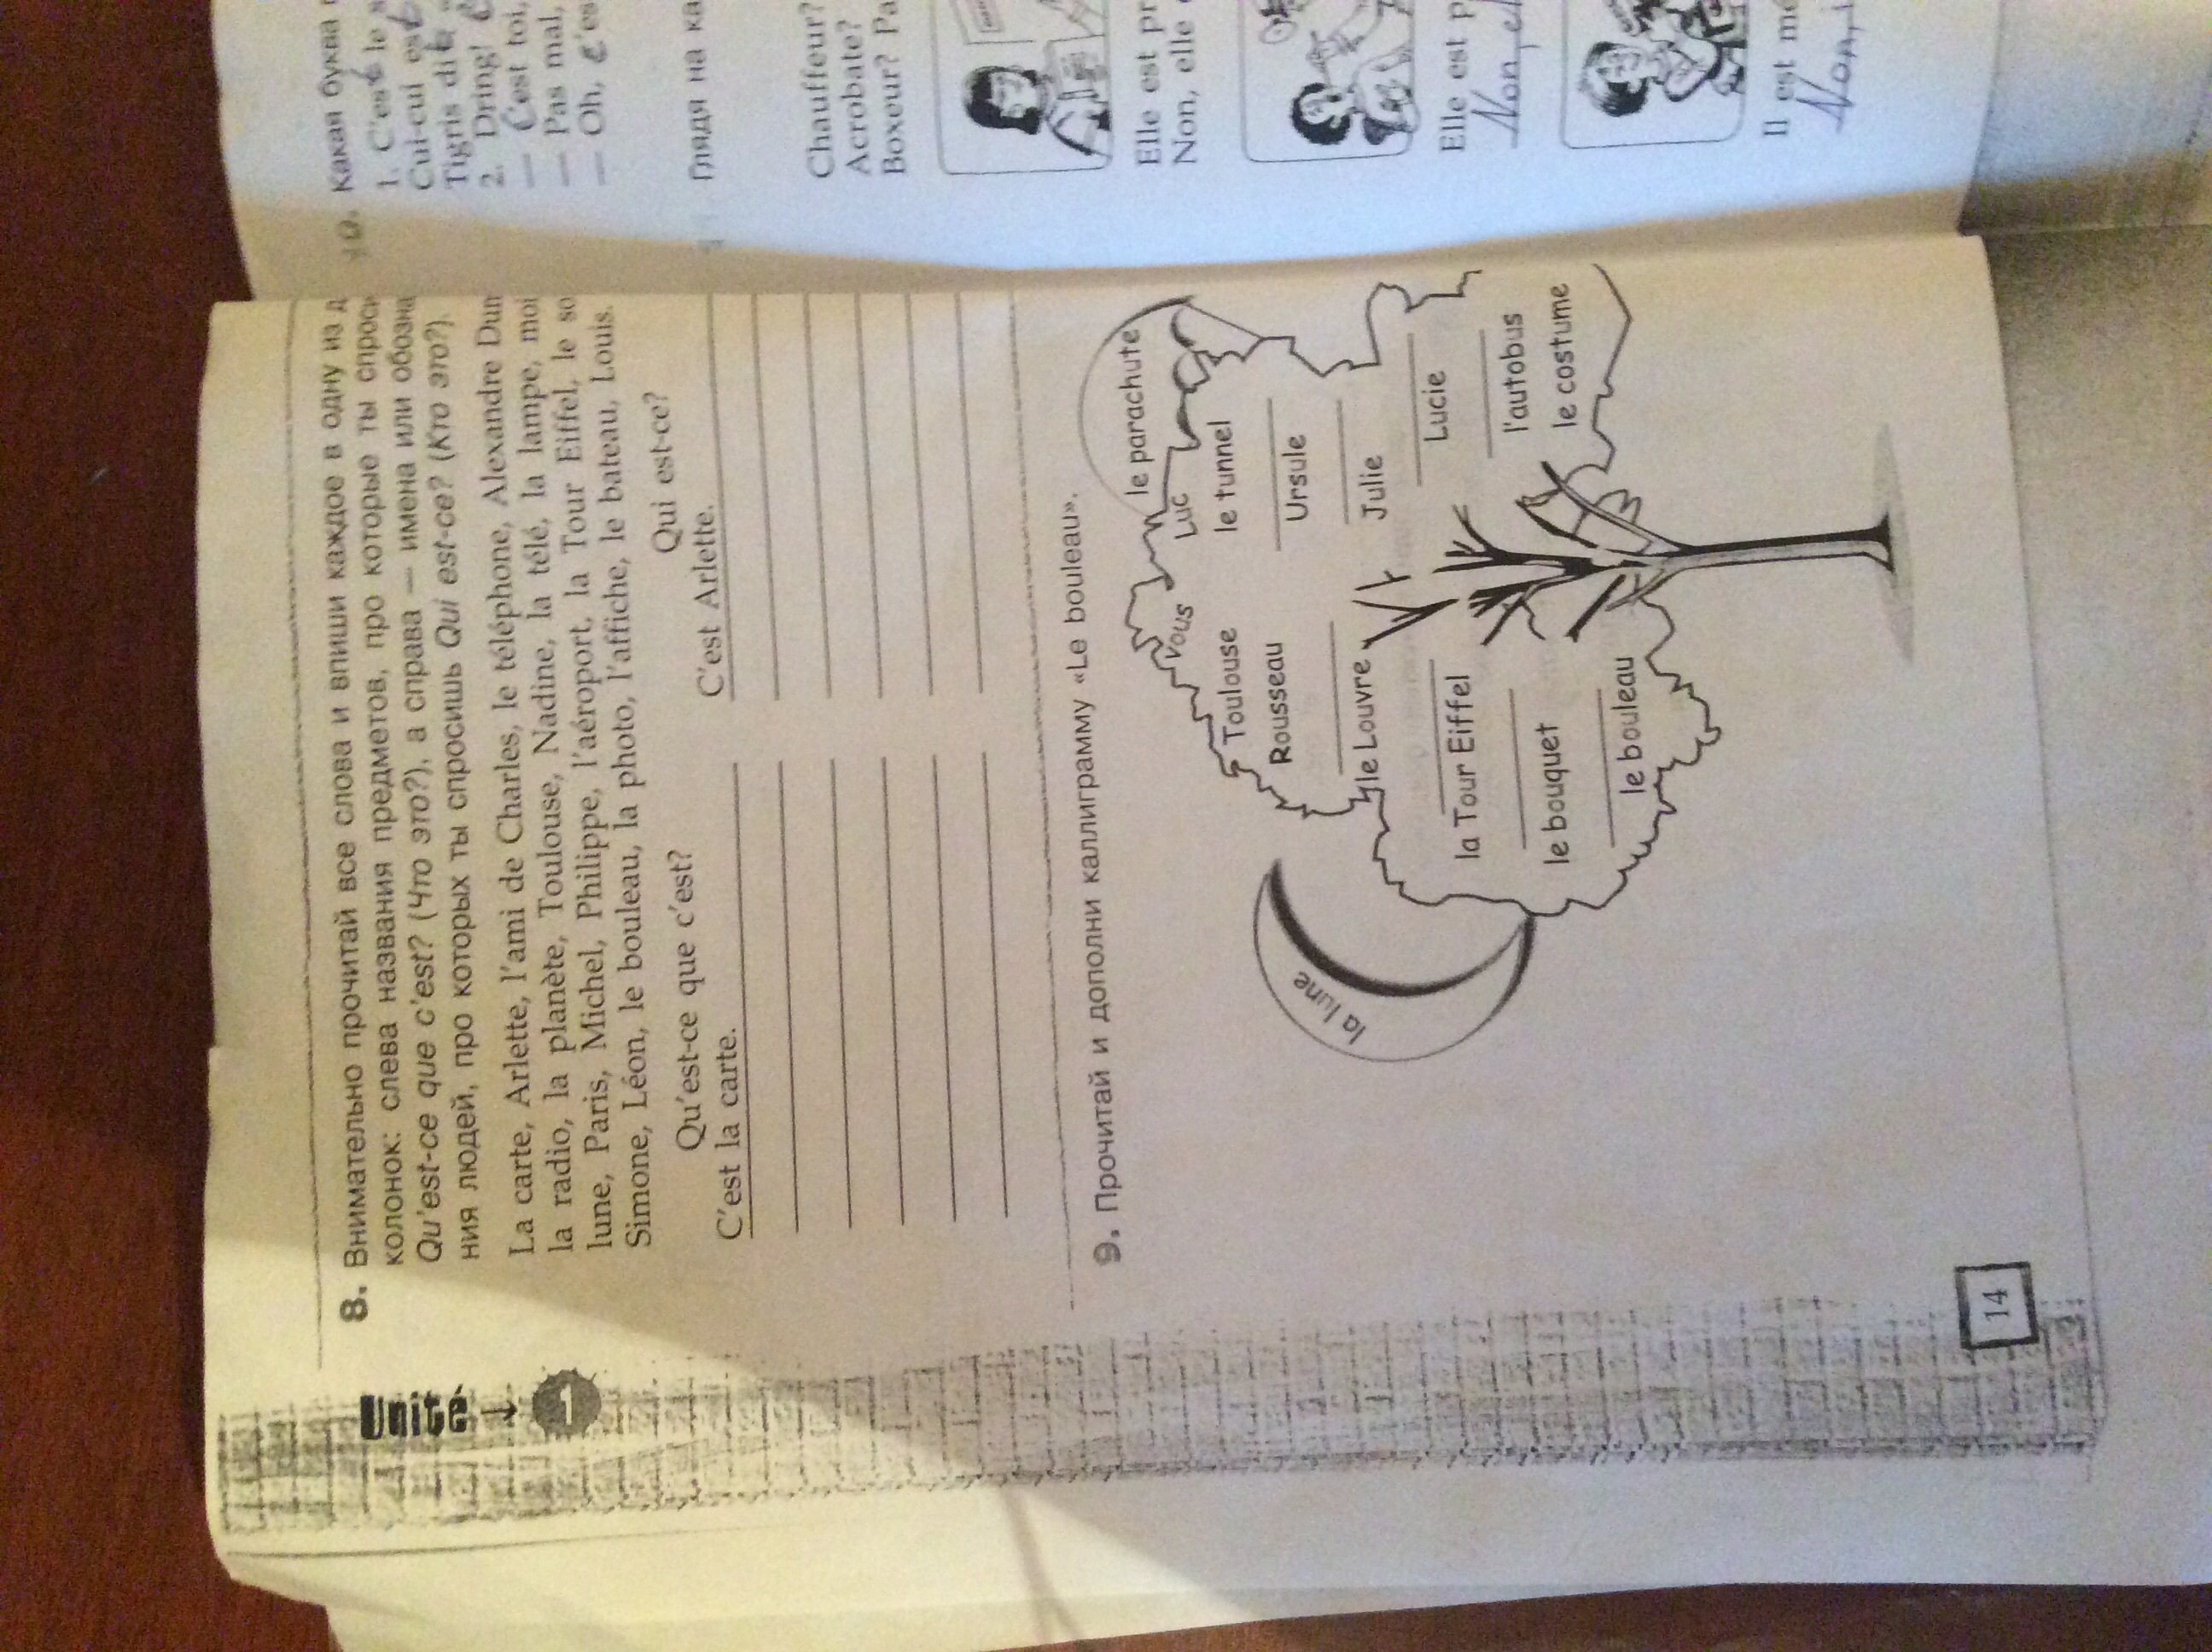 Unité
1
8. Внимательно прочитай все слова и впиши каждое в одну из
колонок: слева названия предметов, про которые ты
Qu'est-ce que c'est? (Что это?), а справа — имена или
ния людей, про которых ты спросишь Qui est-ce? (Кто это?).
La carte, Arlette, l'ami de Charles, le téléphone, Alexandre
la radio, la planète, Toulouse, Nadine, la télé, la lampe,
lune, Paris, Michel, Philippe, l'aéroport, la Tour Eiffel, le
Simone, Léon, le bouleau, la photo, l'affiche, le bateau, Louis.
Qu'est-ce que c'est? Qui est-ce?
C'est la carte. C'est Arlette.
9. Прочитай и дополни каллиграмму «Le bouleau».
la lune
vous
Toulouse
Rousseau
le Louvre
la Tour Eiffel
le bouquet
le bouleau
le parachute
Luc
le tunnel
Ursule
Julie
Lucie
l'autobus
le costume
14
Какая буква
1. C'est le
Cui-cui est
Tigris dit
2. Dring!
— C'est toi,
— Pas mal,
— Oh,
Глядя на
Chauffeur?
Acrobate?
Boxeur?
Elle est
Non, elle
Elle est
Non,
Il est
Non,